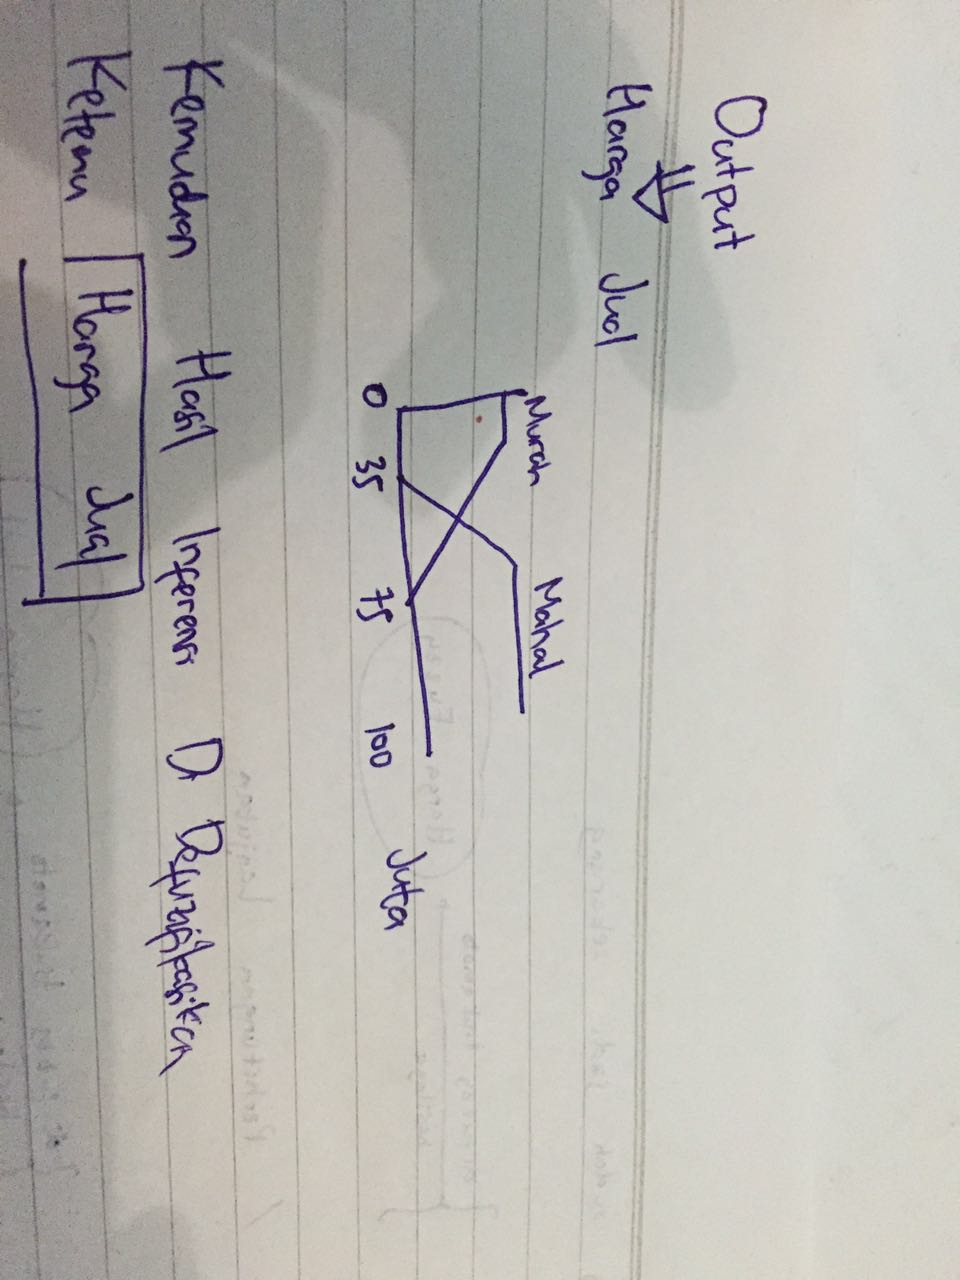 Output
Harga Jual
Murah Mahal
0 35 75 100 Juta
Kemudian Hasil Inferensi Di Defuzzifikasikan
Ketemu Harga Jual